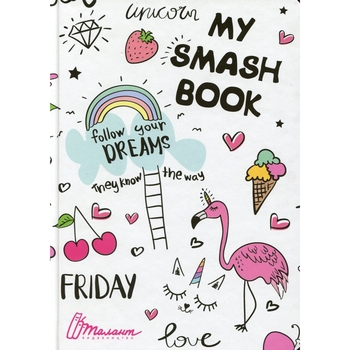 unicorn
MY
SMASH
BOOK
follow your
DREAMS
They know the way
FRIDAY
Талант
видавництво
love